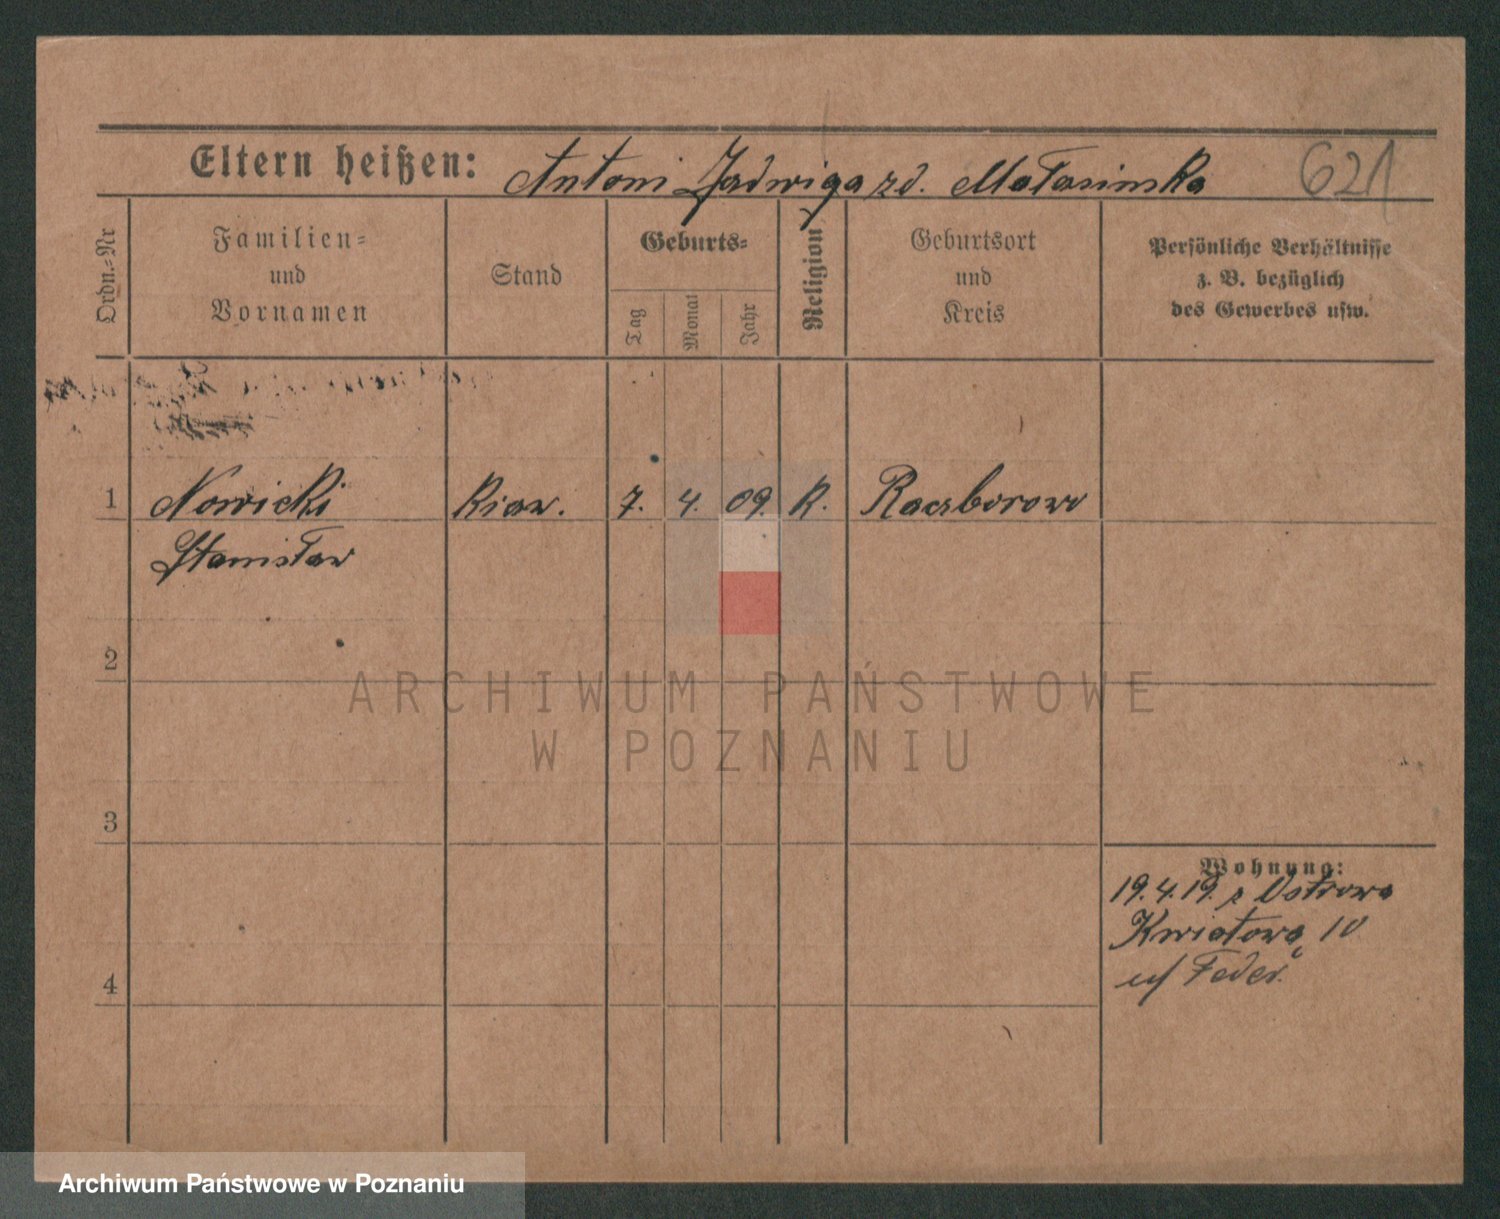 Eltern heißen: Antoni Jadwiga zd. Matasinska 621
Ordn.-Nr
Familien-
und
Vornamen
Stand
Geburts-
Tag
Monat
Jahr
Religion
Geburtsort
und
Kreis
Persönliche Verhältnisse
z. B. bezüglich
des Gewerbes usw.
1 Nowicki 7. 4. 09. R. Raczborowo
Stanisław
2
ARCHIWUM PAŃSTWOWE
W POZNANIU
3
Wohnung:
19.4.19. z Ostrowa
Kwiatowa 10
4
Archiwum Państwowe w Poznaniu